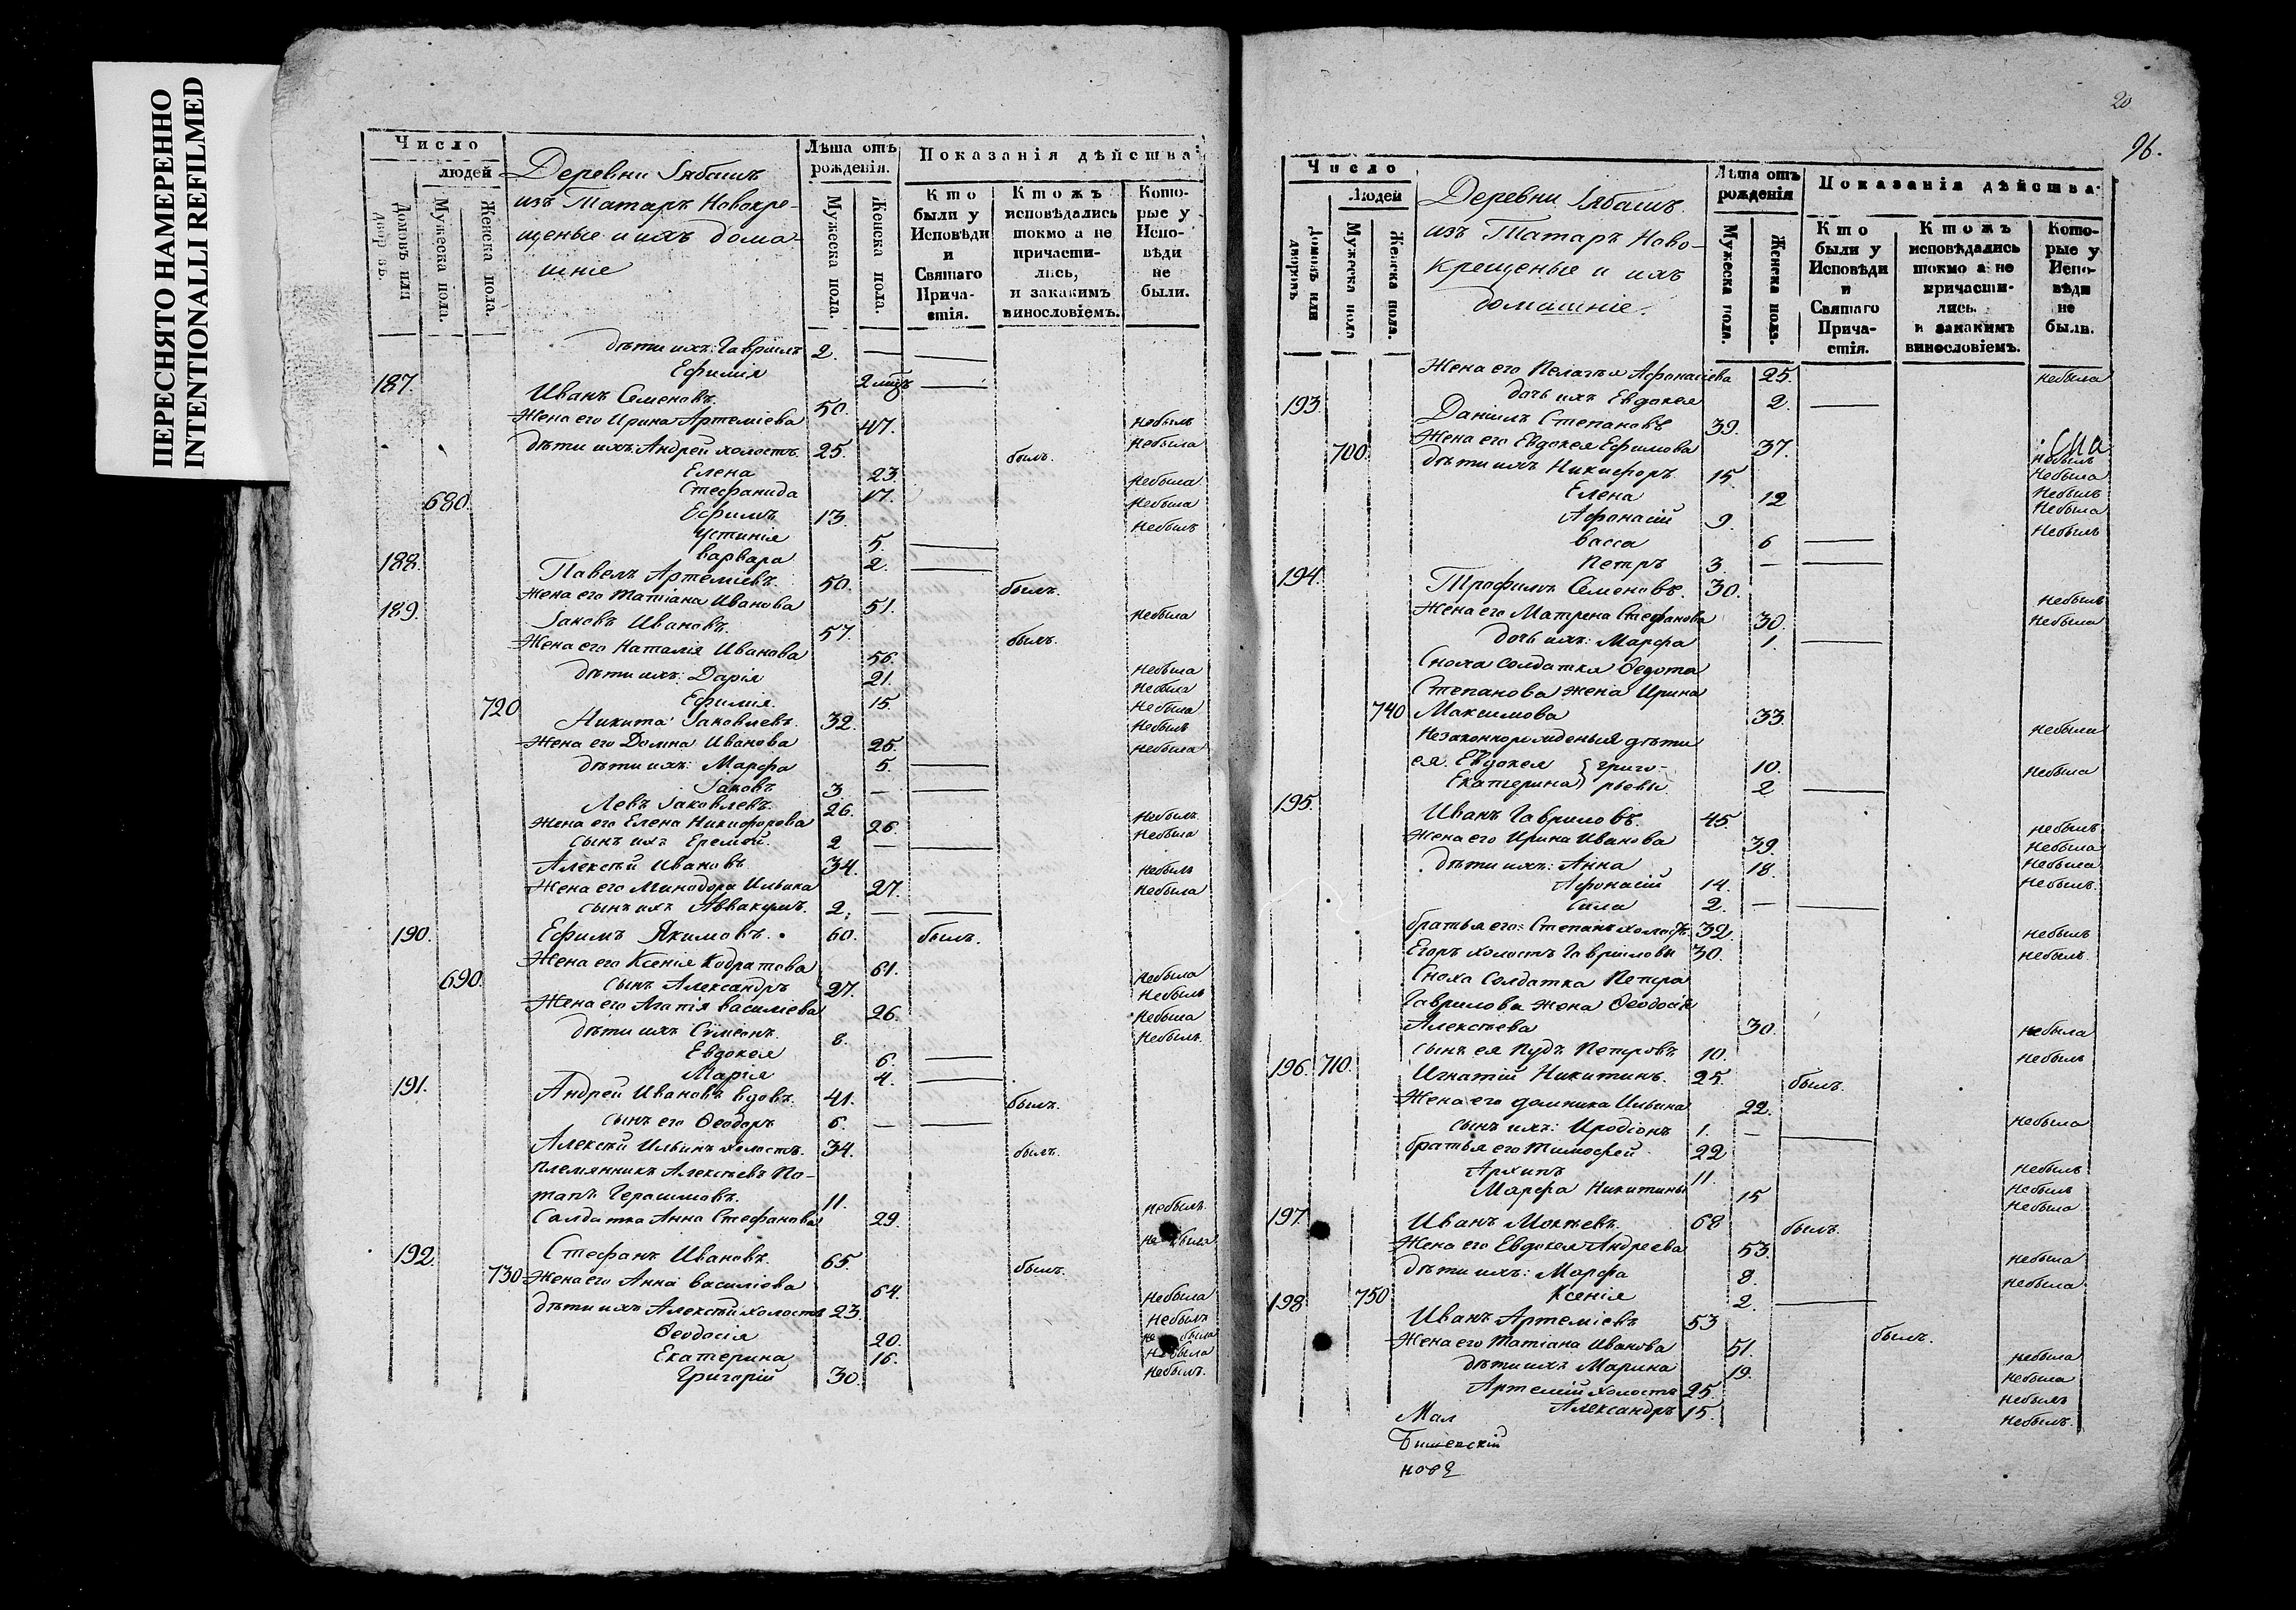 ПЕРЕСНЯТО НАМЕРЕННО
INTENTIONALLI REFILMED
Число
людей
Домовъ или дворовъ.
Мужеска пола.
Женска пола.
Деревни Iябашъ
изъ Татаръ Новокре-
щеные и ихъ дома-
шніе
Лѣта отъ рожденія.
Мужеска пола.
Женска пола.
Показанія дѣйства:
Кто были у Исповѣди и Святаго Прича-стія.
Ктожъ исповѣдались токмо а не причасти-лись, и закакимъ винословіемъ.
Кото-рые у Испо-вѣди не были.
дѣти ихъ: Гавріилъ 2. —
Ефимія 2 мцъ —
187. Иванъ Семеновъ. 50. небылъ
Жена его Ирина Артеміева 47. небыла
дѣти ихъ: Андрей холостъ 25. былъ.
Елена 23. небыла
Стефанида 17. небыла
680. Ефимъ 13. небылъ
Устинія 5. —
Варвара 2. —
188. Павелъ Артеміевъ. 50. былъ.
Жена его Татіана Иванова 51. небыла
189. Iаковъ Ивановъ. 57. былъ.
Жена его Наталія Иванова 56. небыла
дѣти ихъ: Дарія 21. небыла
720 Ефимія. 15. небыла
Никита Iаковлевъ. 32. небылъ
Жена его Домна Иванова 25. небыла
дѣти ихъ: Марфа 5. —
Iаковъ 3. — —
Левъ Iаковлевъ. 26. небылъ.
Жена его Елена Никифорова 26. небыла
сынъ ихъ Еремей. 2 — —
Алексѣй Ивановъ 34. небылъ
Жена его Минодора Ильина 27. небыла
сынъ ихъ Аввакумъ. 2. — —
190. Ефимъ Якимовъ. 60. былъ.
Жена его Ксенія Кодратова 61. небыла
690. сынъ Александръ 27. небылъ
Жена его Агапія Василіева 26. небыла
дѣти ихъ Симеонъ. 8. небылъ.
Евдокея 6. —
Марія 4. —
191. Андрей Ивановъ вдовъ. 41. былъ.
сынъ его Ѳеодоръ 6. — —
Алексѣй Ильинъ холостъ. 34. былъ.
племянникъ Алексѣевъ По-
тапъ Герасимовъ. 11. небылъ.
Солдатка Анна Стефанова 29. небыла
192. Стефанъ Ивановъ. 65. былъ.
730 Жена его Анна Василіева 64. небыла
дѣти ихъ Алексѣй холостъ 23. небылъ
Ѳеодосія 20. небыла
Екатерина 16. небыла
Григорій 30. небылъ.
20
96.
Число
Людей
Домовъ или дворовъ
Мужеска пола
Женска пола.
Деревни Iябашъ.
изъ Татаръ Ново-
крещеные и ихъ
домашніе.
Лѣта отъ рожденія
Мужеска пола.
Женска пола.
Показанія дѣйства:
Кто были у Исповѣди и Святаго Прича-стія.
Ктожъ исповѣдались токмо а не причасти-лись. и закакимъ винословіемъ.
Кото-рые у Испо-вѣди не были.
Жена его Пелагея Афонасіева 25. небыла
дочь ихъ Евдокея 2. —
193. Даніилъ Степановъ 39. небылъ
700. Жена его Евдокея Ефимова 37. небыла
дѣти ихъ Никифоръ 15. небылъ
Елена 12 небыла
Афонасій 9. небылъ
Васса 6 —
Петръ 3. — —
194. Трофимъ Семеновъ. 30. небылъ
Жена его Матрена Стефанова 30. небыла
дочь ихъ: Марфа 1. —
Сноха солдатка Ѳедота
Степанова жена Ирина
740 Максимова 33. небыли
Незаконнорожденыя дѣти
ея. Евдокея } григо- 10. небыла
Екатерина } рьевы. 2 —
195. Иванъ Гавриловъ. 45. небылъ
Жена его Ирина Иванова 39. небыла
дѣти ихъ: Анна 18. небыла
Афонасій 14. небылъ.
Сила 2. — —
братья его: Степанъ холостъ 32. небылъ
Егоръ холостъ Гавриловы 30. небылъ.
Сноха солдатка Петра
Гаврилова жена Ѳеодосія
Алексѣева 30. небыла
сынъ ея Пудъ Петровъ 10. небылъ
196. 710. Игнатій Никитинъ. 25. былъ.
Жена его Домника Ильина 22. небыла
сынъ ихъ: Иродіонъ 1. — —
братья его Тимофей 22 небылъ
Архипъ 11. небылъ
Марфа Никитины 15 небыла
197. Иванъ Мокѣевъ. 68 былъ.
Жена его Евдокея Андреева 53. небыла
дѣти ихъ: Марфа 8. небыла
750 Ксенія 2. —
198 Иванъ Артеміевъ 53 былъ.
Жена его Татіана Иванова 51. небыла
дѣти ихъ Марина 19. небыла
Артемій холостъ 25. небылъ
Александръ 15. небылъ.